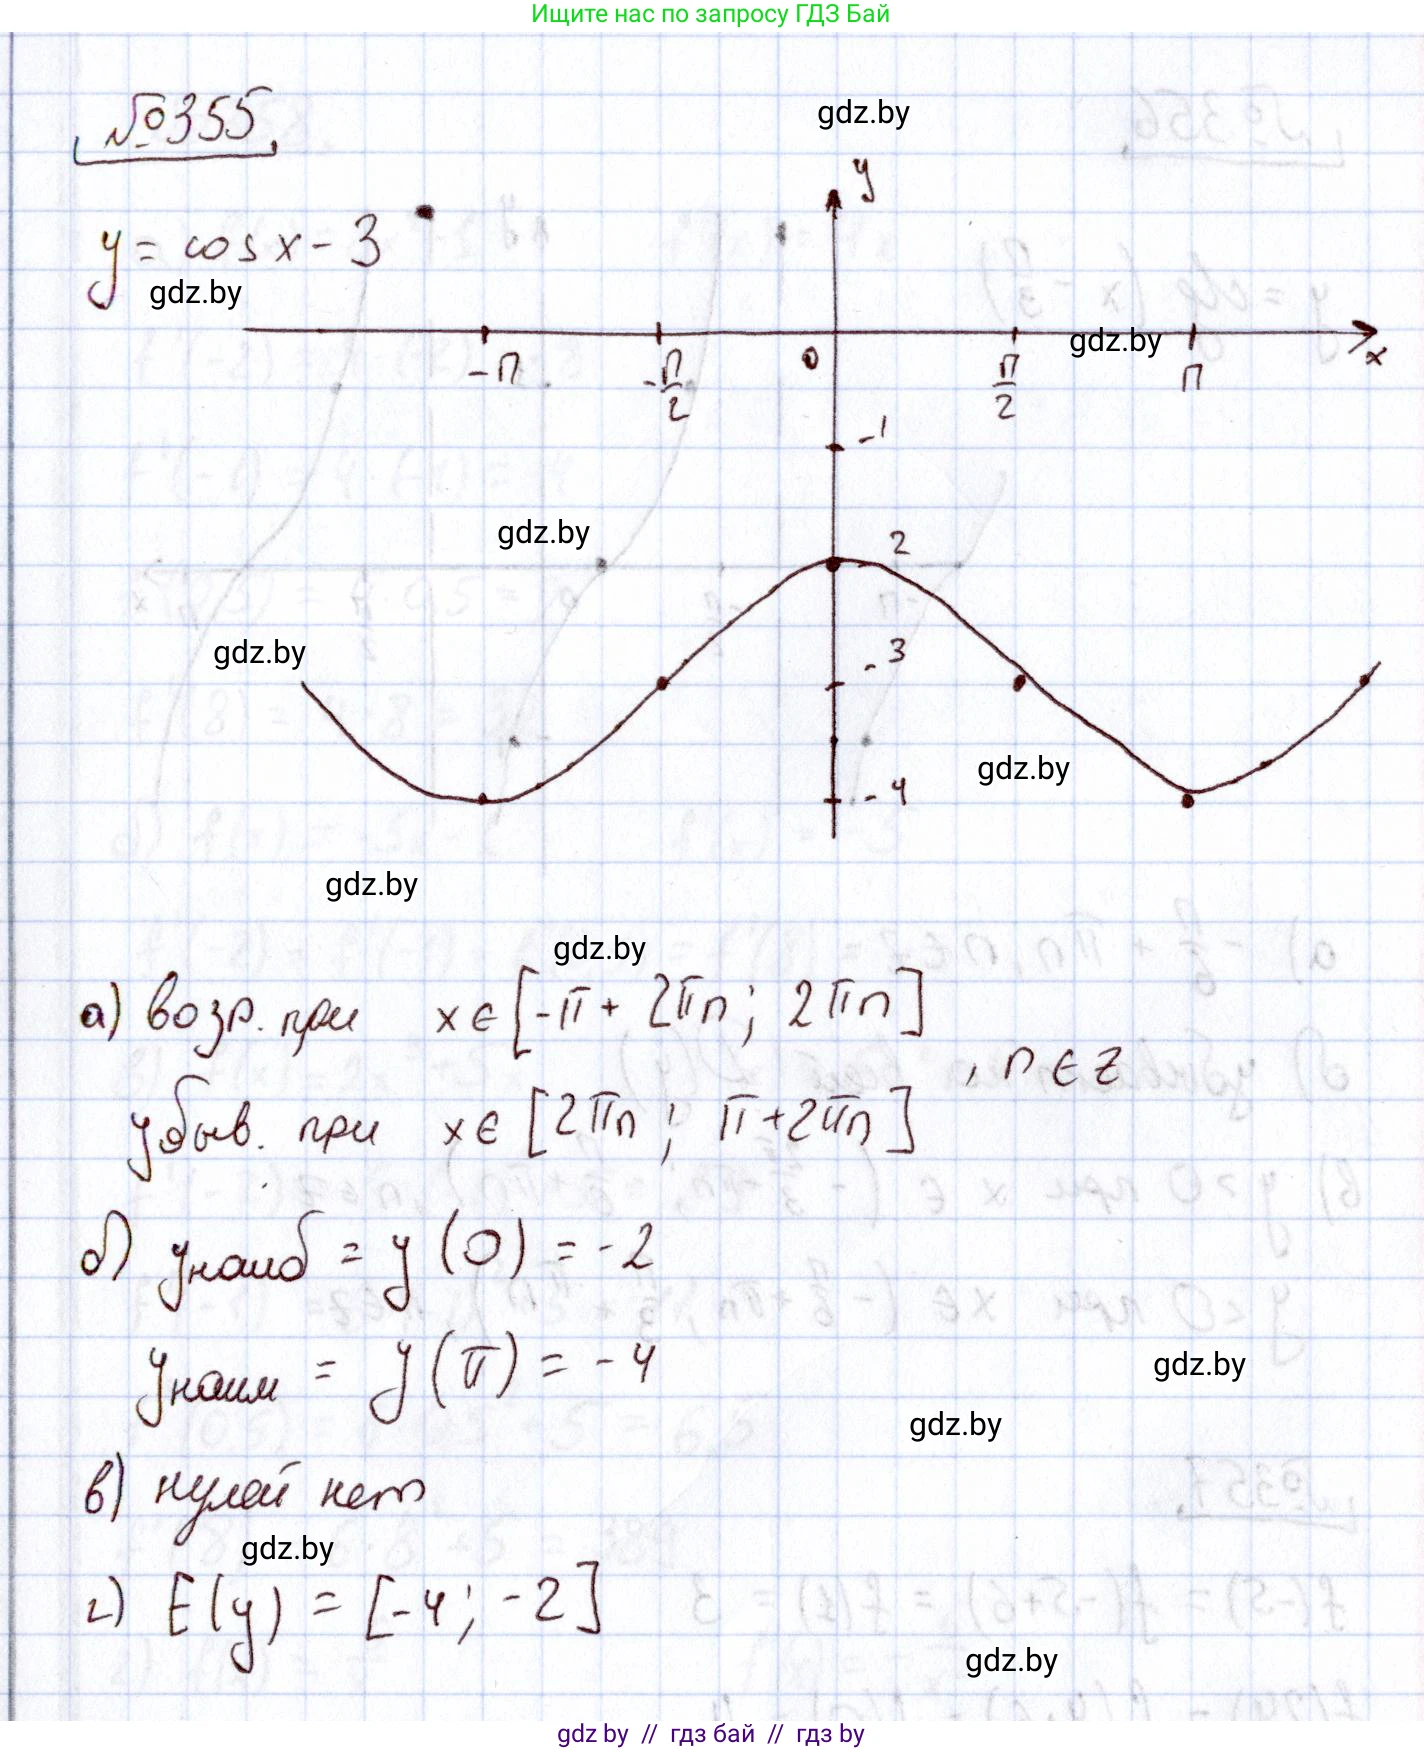 Ищите нас по запросу ГДЗ Бай
№355
gdz.by
y
y = cos x - 3
gdz.by
gdz.by
-π
-π/2
0
π/2
π
x
-1
gdz.by
2
gdz.by
-3
gdz.by
-4
gdz.by
gdz.by
а) возр. при x ∈ [-π + 2πn; 2πn]
, n ∈ Z
убыв. при x ∈ [2πn; π+2πn]
б) yнаиб = y(0) = -2
yнаим = y(π) = -4
gdz.by
gdz.by
в) нулей нет
gdz.by
г) E(y) = [-4; -2]
gdz.by
gdz.by // гдз бай // гдз by